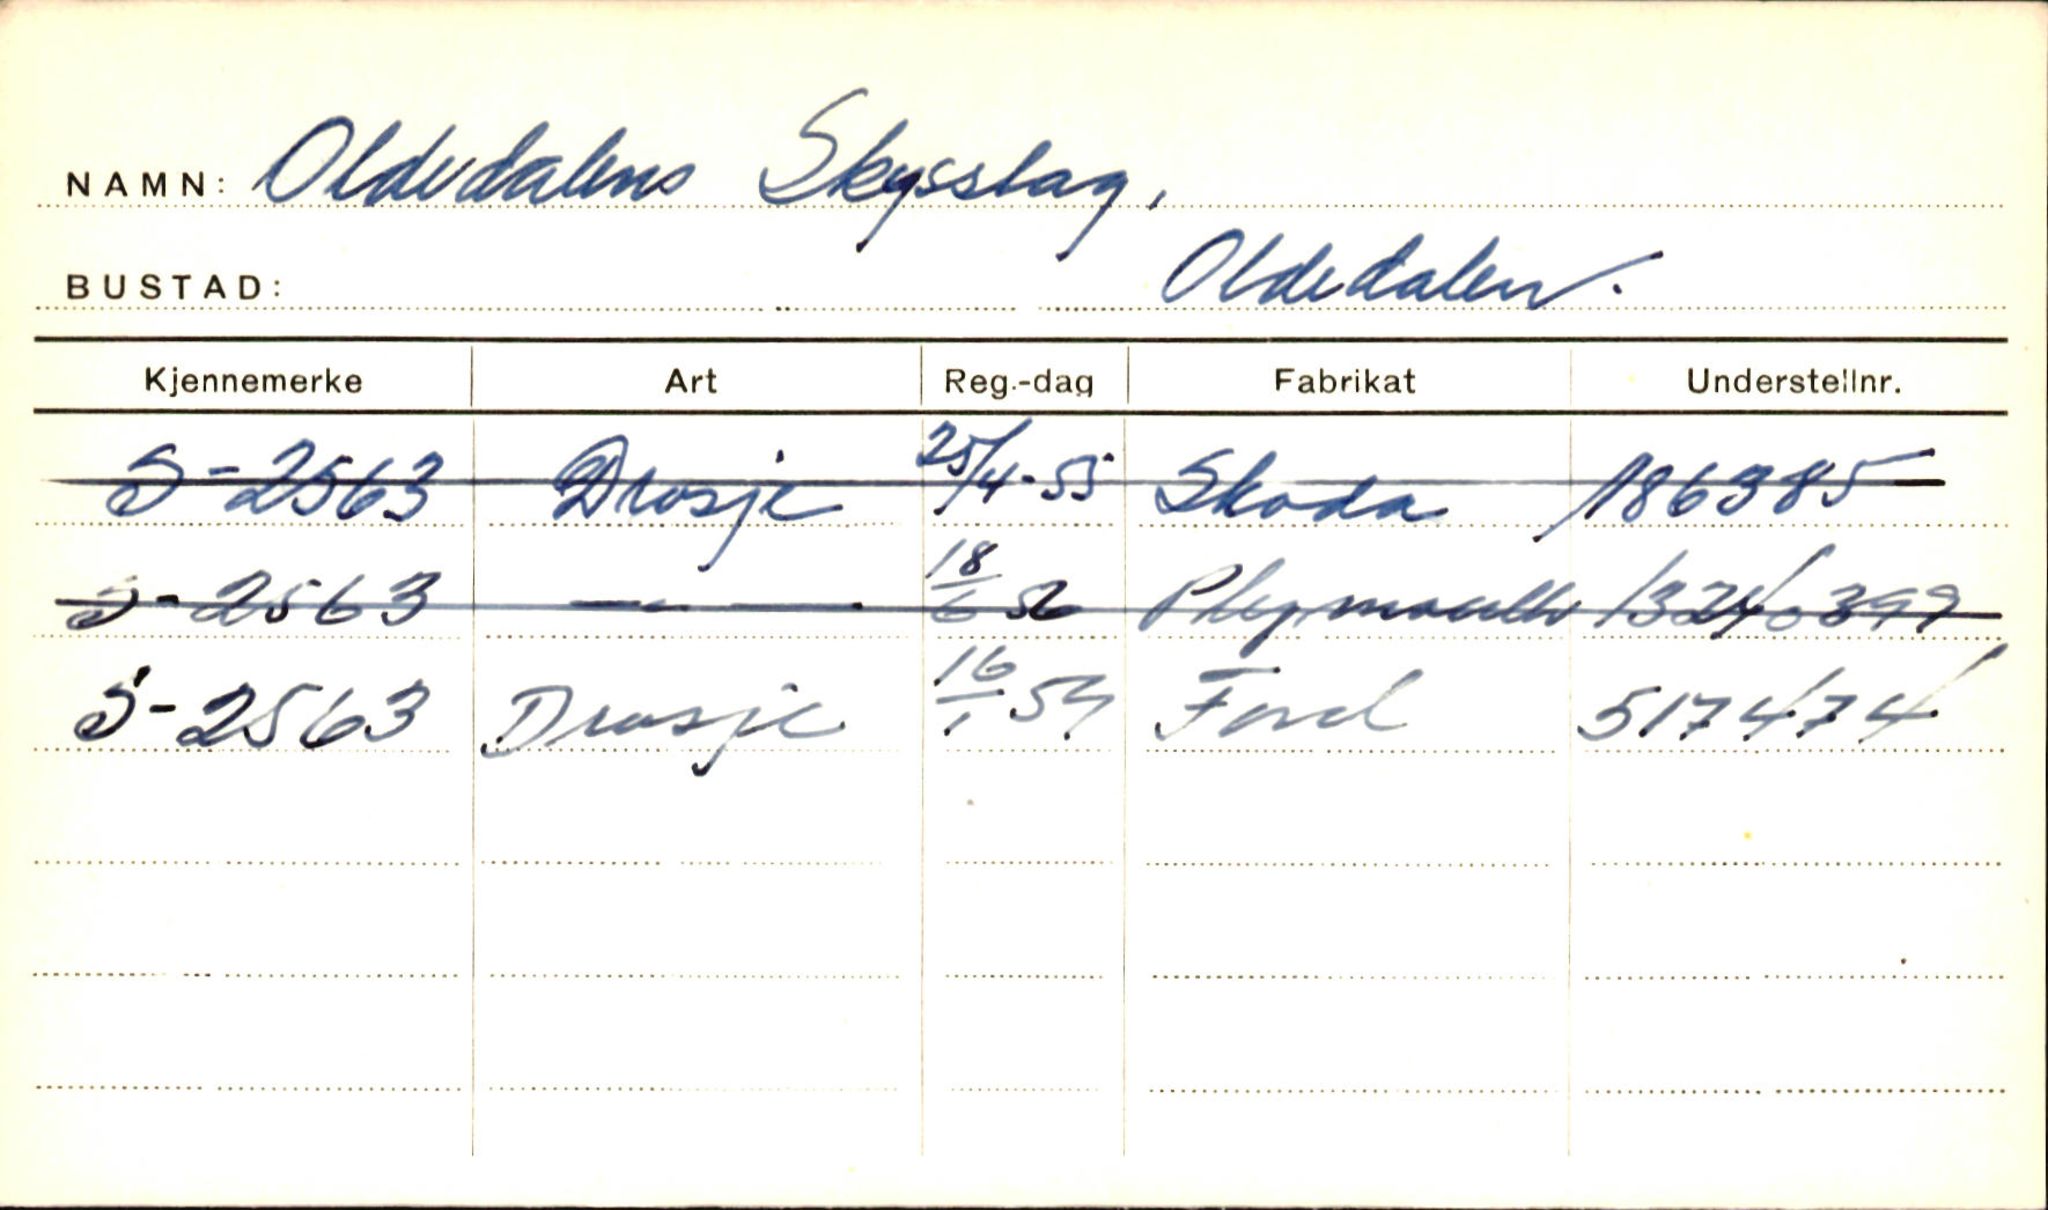 NAMN: Oldedalens Skysslag,
BUSTAD: Oldedalen.
Kjennemerke Art Reg.-dag Fabrikat Understellnr.
S-2563 Drosje 25/4-55 Skoda 186385
S-2563 — — 18/6 56 Plymouth 13240399
S-2563 Drosje 16/1 59 Ford 517474